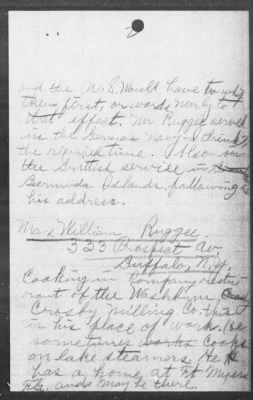 and the U.S. Would have to whip
them first, or words nearly to
that effect. Mr Rugge served
in the German Navy I think
the required time. Also in
the British service in the
Bermuda Islands, following is
his address.
Max William Rugge.
333 Prospect Av
Buffalo, N.Y.
Cooking in Company
rant of the Washburn
Crosby Milling Co. that
is his place of work. He
sometimes works cooks
on lake steamers. He
has a home at Ft Myers
Fla. and may be there